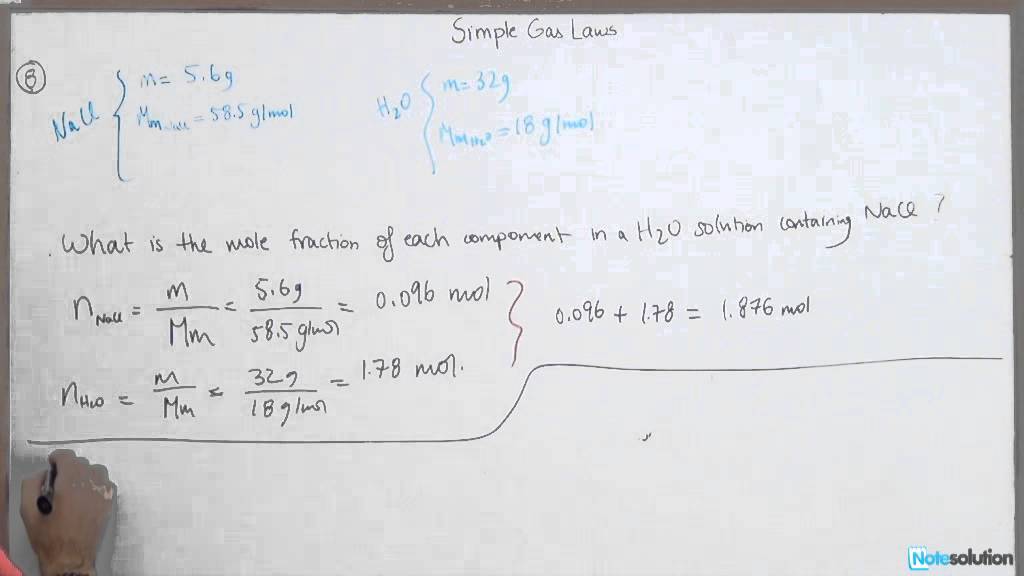 Simple Gas Laws
8
NaCl { m = 5.6g
Mm NaCl = 58.5 g/mol
H2O { m = 32g
Mm H2O = 18 g/mol
What is the mole fraction of each component in a H2O solution containing NaCl ?
nNaCl = m/Mm = 5.6g/58.5 g/mol = 0.096 mol
0.096 + 1.78 = 1.876 mol
nH2O = m/Mm = 32g/18 g/mol = 1.78 mol.
Notesolution